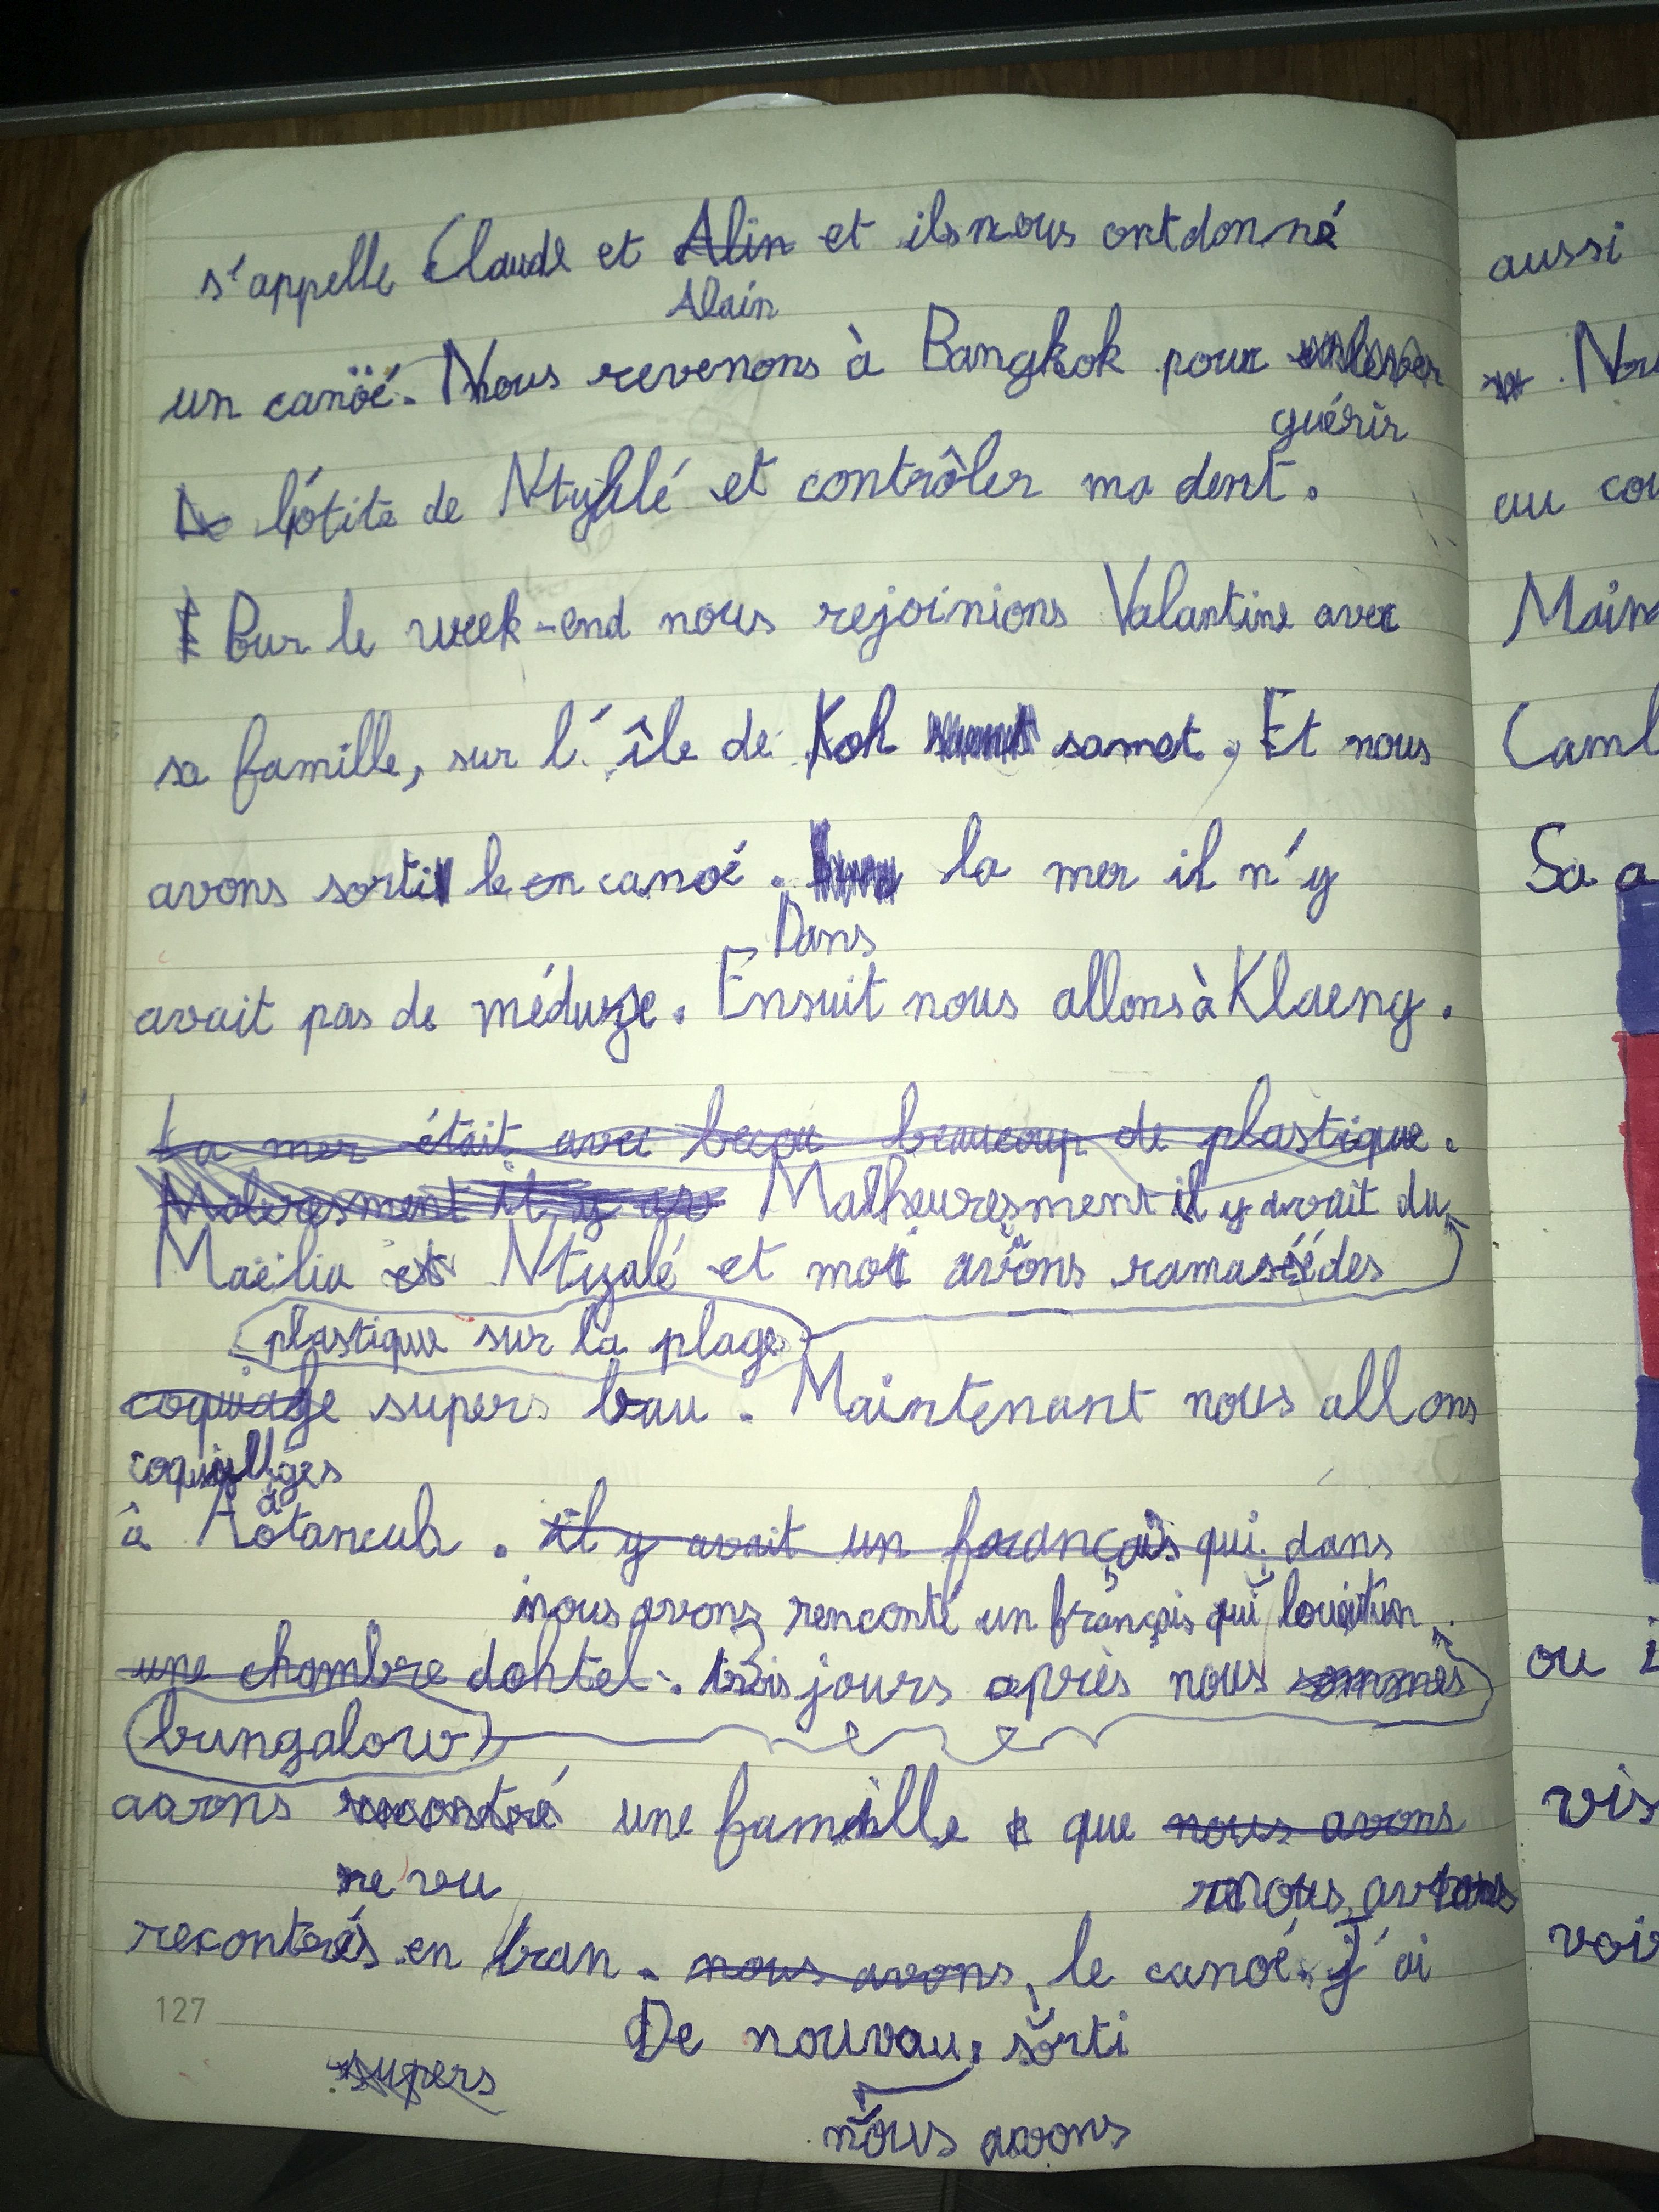 s'appelle Claude et Alin et ils nous ont donné
Alain
un canöé. Nous revenons à Bangkok pour
guérir
l'otite de Ntyälé et contrôler ma dent.
Pour le week-end nous rejoinions Valantine avec
sa famille, sur l'île de Koh samet, Et nous
avons sorti le en canoé. la mer il n'y
Dans
avait pas de méduze. Ensuit nous allons à Klaeng.
La mer était avec becou beaucoup de plastique.
Maleresment il y av Malheuresment il y avait du
Maëlia et Ntyalé et moi avons ramassé des
plastique sur la plage
coquiage supers bau. Maintenant nous allons
coquillages
à Aotancub. il y avait un français qui dans
nous avons renconté un français qui louait un
une chambre dohtel. trois jours après nous sommes
bungalow
avons recontré une famille que nous avons
re vu
nous avons
recontrés en bran. nous avons, le canoé. J'ai
127
De nouvau, sorti
supers
nous avons
aussi
Nou
au cou
Main
Camb
Sa a
ou i
vis
voir